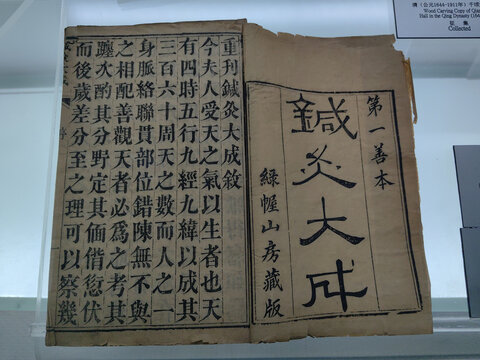 第一善本
鍼灸大成
綠幄山房藏版
重刊鍼灸大成敘
今夫人受天之氣以生者也天
有四時五行九經九緯以成其
三百六十周天之數而人之一
身脈絡聯貫部位錯陳無不與
之相配善觀天者必為之考其
躔次酌其分野定其愆伏
而後歲差分至之理可以察幾
清（公元1644-1911年）千頃
Wood Carving Copy of Qian
Hall in the Qing Dynasty (164
征 集
Collected